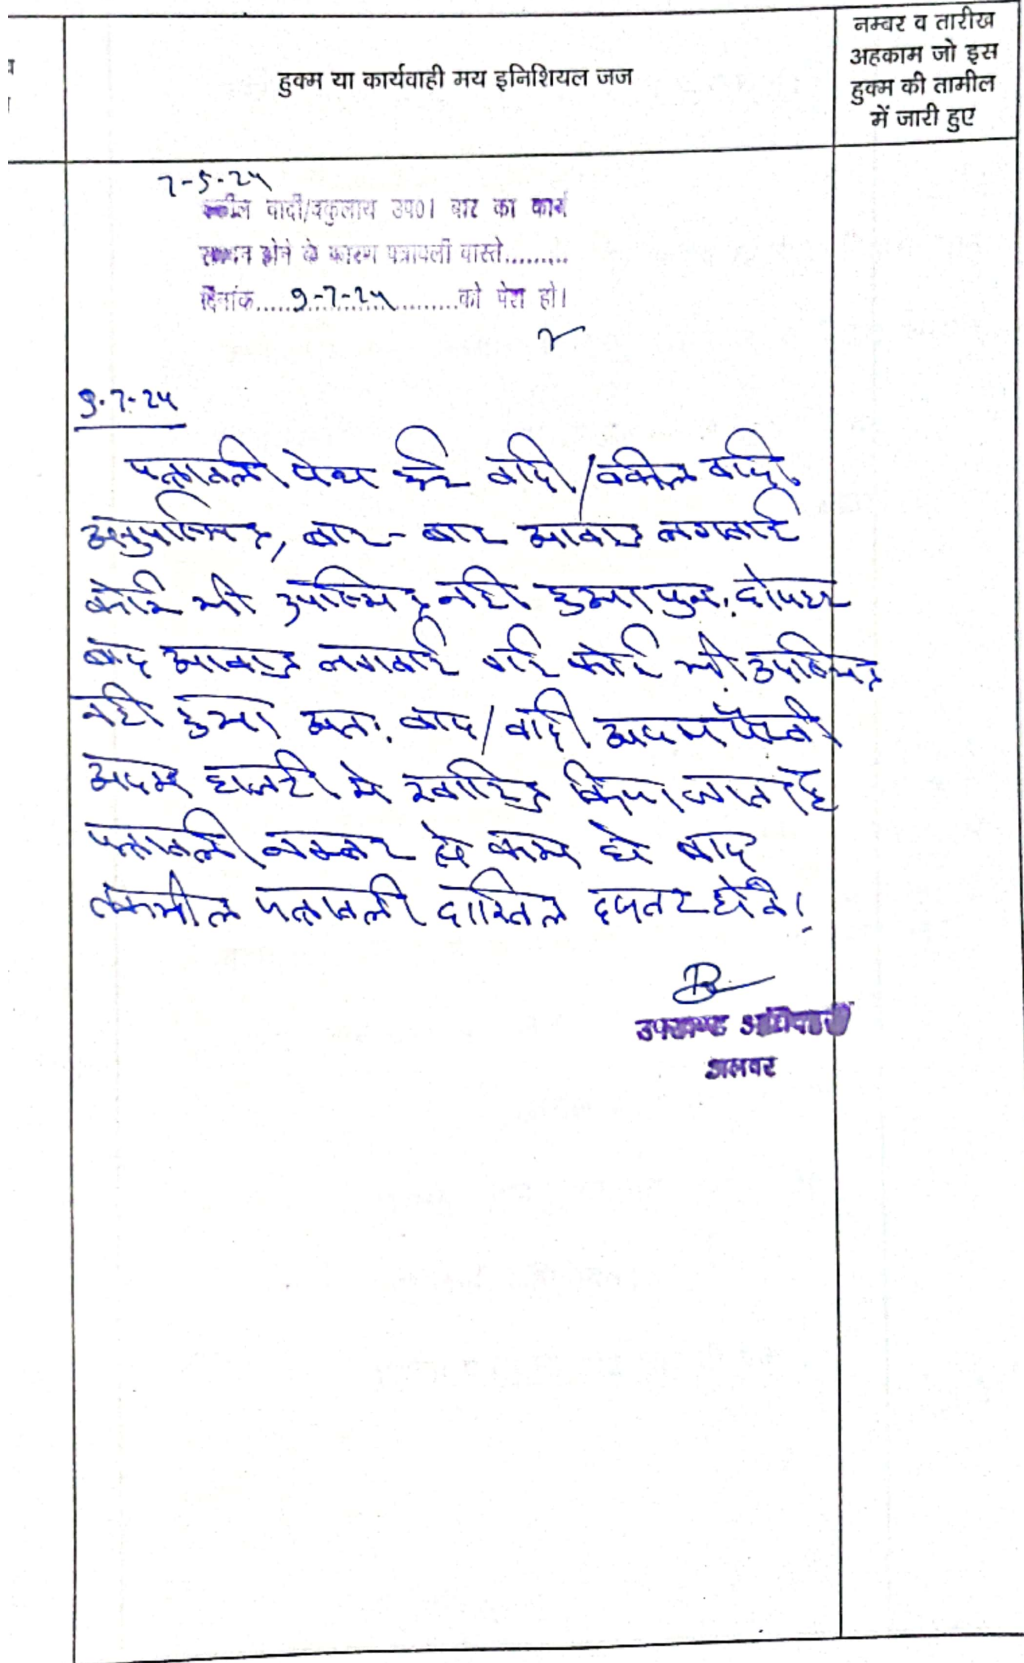 हुक्म या कार्यवाही मय इनिशियल जज
नम्बर व तारीख
अहकाम जो इस
हुक्म की तामील
में जारी हुए
7-5-24
वकील वादी/वकुलाय उप0। बार का कार्य
स्थगन होने के कारण पत्रावली वास्ते.........
दिनांक.....9-7-24..........को पेश हो।
9-7-24
पत्रावली पेश हुई वादी/वकील वादी
अनुपस्थित, बार-बार आवाज लगवाई
कोई भी उपस्थित नही हुआ पुनः दोपहर
बाद आवाज लगवाई गई कोई भी उपस्थित
नही हुआ अतः वाद/वादी अदम पैरवी
अदम हाजरी मे खारिज किया जाता है
पत्रावली नम्बर से कम हो बाद
तकमील पत्रावली दाखिल दफ्तर होवे।
उपखण्ड अधिकारी
अलवर